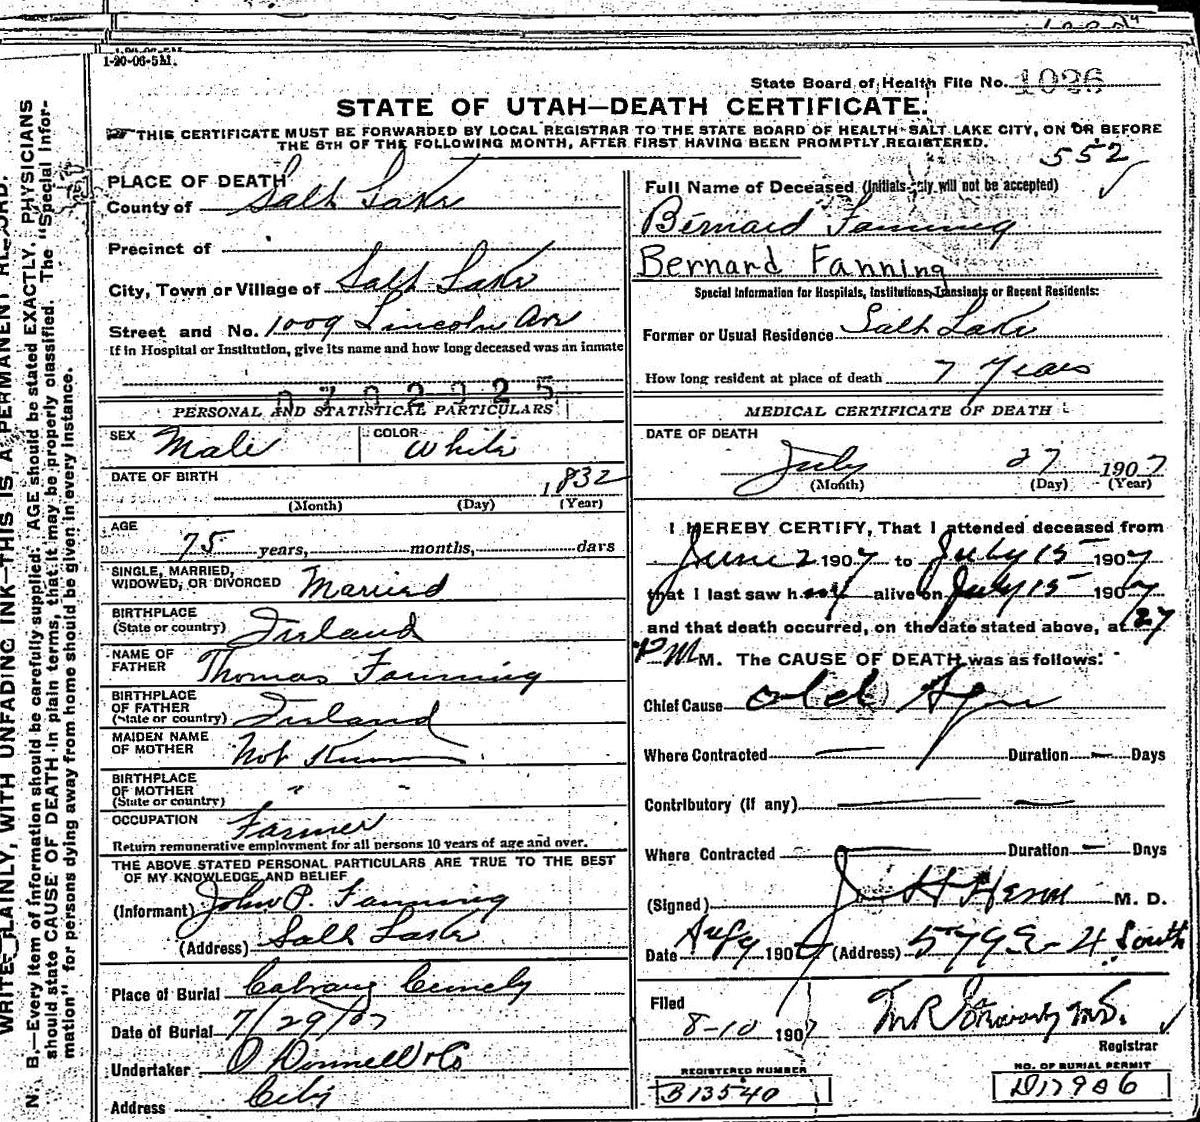 1-20-06-5M.
State Board of Health File No. 1026
STATE OF UTAH—DEATH CERTIFICATE.
THIS CERTIFICATE MUST BE FORWARDED BY LOCAL REGISTRAR TO THE STATE BOARD OF HEALTH-SALT LAKE CITY, ON OR BEFORE
THE 5TH OF THE FOLLOWING MONTH, AFTER FIRST HAVING BEEN PROMPTLY REGISTERED.
552
PLACE OF DEATH
County of Salt Lake
Precinct of
City, Town or Village of Salt Lake
Street and No. 1009 Lincoln Ave
If in Hospital or Institution, give its name and how long deceased was an inmate
0702925
PERSONAL AND STATISTICAL PARTICULARS
SEX Male COLOR White
DATE OF BIRTH 1832
(Month) (Day) (Year)
AGE
75 years, months, days
SINGLE, MARRIED,
WIDOWED, OR DIVORCED Married
BIRTHPLACE
(State or country) Ireland
NAME OF
FATHER Thomas Fanning
BIRTHPLACE
OF FATHER
(State or country) Ireland
MAIDEN NAME
OF MOTHER Not Known
BIRTHPLACE
OF MOTHER
(State or country) " "
OCCUPATION Farmer
Return remunerative employment for all persons 10 years of age and over.
THE ABOVE STATED PERSONAL PARTICULARS ARE TRUE TO THE BEST
OF MY KNOWLEDGE AND BELIEF
(Informant) John P. Fanning
(Address) Salt Lake
Place of Burial Calvary Cemety
Date of Burial 7/29/07
Undertaker O Donnell & Co
Address City
Full Name of Deceased (Initials only will not be accepted)
Bernard Fanning
Bernard Fanning
Special Information for Hospitals, Institutions, Transients or Recent Residents:
Former or Usual Residence Salt Lake
How long resident at place of death 7 Years
MEDICAL CERTIFICATE OF DEATH
DATE OF DEATH
July 27 1907
(Month) (Day) (Year)
I HEREBY CERTIFY, That I attended deceased from
June 2 1907 to July 15 1907
that I last saw h im alive on July 15 1907
and that death occurred, on the date stated above, at 127
P M M. The CAUSE OF DEATH was as follows:
Chief Cause old Age
Where Contracted — Duration — Days
Contributory (if any) — —
Where Contracted — Duration — Days
(Signed) M. D.
Date 1907 (Address) 579 E- 4 South
Filed
8-10 1907
Registrar
REGISTERED NUMBER
B13540
NO. OF BURIAL PERMIT
D17986
WRITE PLAINLY, WITH UNFADING INK—THIS IS A PERMANENT RECORD.
N. B.—Every item of information should be carefully supplied. AGE should be stated EXACTLY. PHYSICIANS
should state CAUSE OF DEATH in plain terms, that it may be properly classified. The "Special Infor-
mation" for persons dying away from home should be given in every instance.